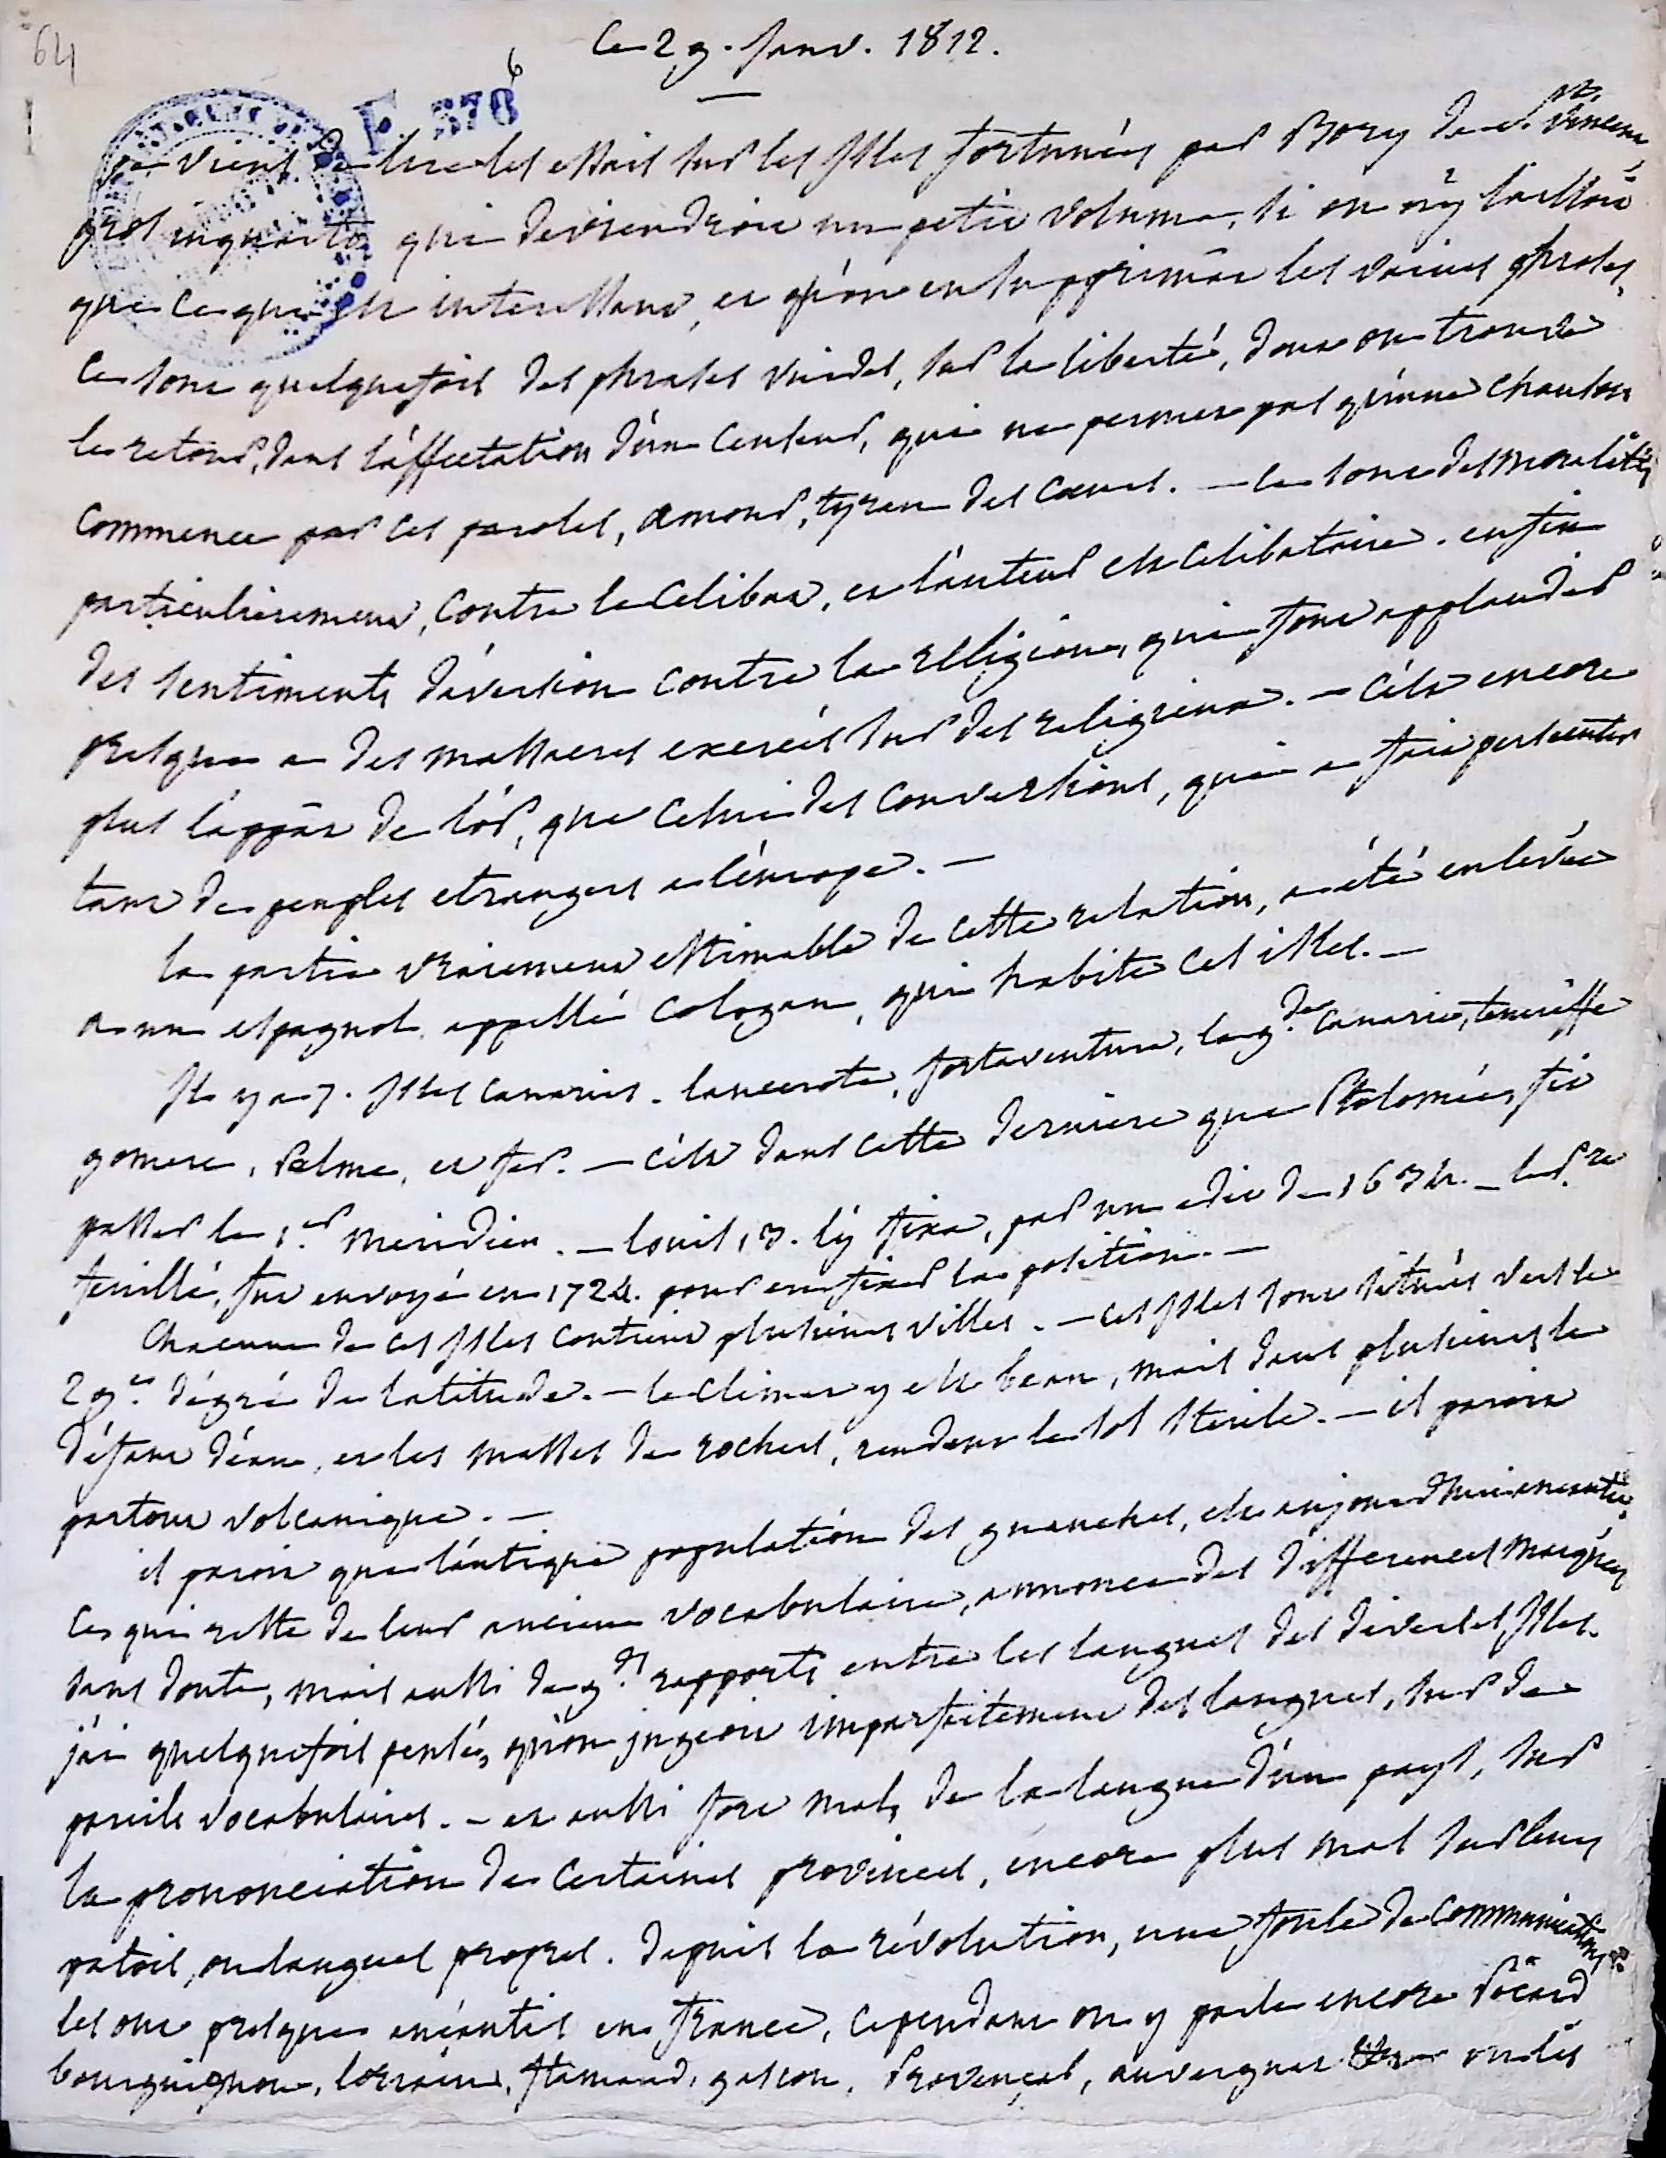 64
Ce 29. Janv. 1812.
F 376
6
je viens de lire les essais sur les Isles fortunées par Bory de st. Vincent
gros inquarto qui deviendroit un petit volume, si on n'y laissoit
que ce qui est interessant, et qu'on en supprimât les vaines phrases,
ce sont quelquefois des phrases vuides, sur la liberté, dont on trouve
le retour, dans l'affectation d'un censeur, qui ne permet pas qu'une chanson
commence par ces paroles, amour, tyran des coeurs. — ce sont des moralités
particulierement, contre le célibat, et l'auteur est célibataire. enfin
des sentiments d'aversion contre la religion, qui font applaudir
presque a des massacres exercés sur des religieux. — c'est encore
plus l'appât de l'or, que celui des conversions, qui a fait persécuter
tant de peuples etrangers a l'europe. —
la partie vraiement estimable de cette relation, a été enlevée
a un espagnol appellé Cologan, qui habite ces isles. —
Il y a 7. Isles canaries. lancerote, fortaventure, la gde. Canarie, teneriffe
gomere, Palme, et fer. — c'est dans cette derniere que Ptolomée, fit
passer le 1er meridien. — louis 13. l'y fixa, par un edit de 1634. — le P. re
feuillé, fut envoyé en 1724. pour en fixer la position. —
Chacune de ces Isles contient plusieurs villes. — ces Isles sont situées vers le
29e. dégré de latitude. — le climat y est beau, mais dans plusieurs le
défaut d'eau, et les masses de rochers, rendent le sol sterile. — il paroit
partout volcanique. —
il paroit que l'antique population des guanches, est aujourd'hui anéantie.
ce qui reste de leur ancien vocabulaire, annonce des differences marquées
sans doute, mais aussi de gds. rapports entre les langues des diverses Isles.
j'ai quelquefois pensé, qu'on jugeoit imparfaitement des langues, sur de
pareils vocabulaires. — et aussi fort mal, de la langue d'un pays, sur
la prononciation de certaines provinces, encore plus mal sur leurs
patois, ou langues propres. depuis la révolution, une foule de communications
les ont presque anéantis en france, cependant on y parle encore Picard
bourguignon, lorrain, flamand, gascon, Provençal, auvergnat ou lis